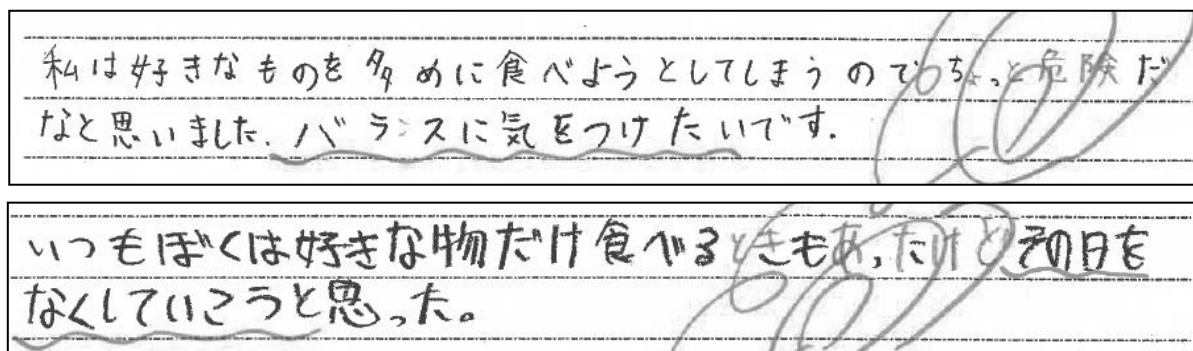 私は好きなものを多めに食べようとしてしまうのでちょっと危険だ
なと思いました。バランスに気をつけたいです。
いつもぼくは好きな物だけ食べるときもあったけどその日を
なくしていこうと思った。